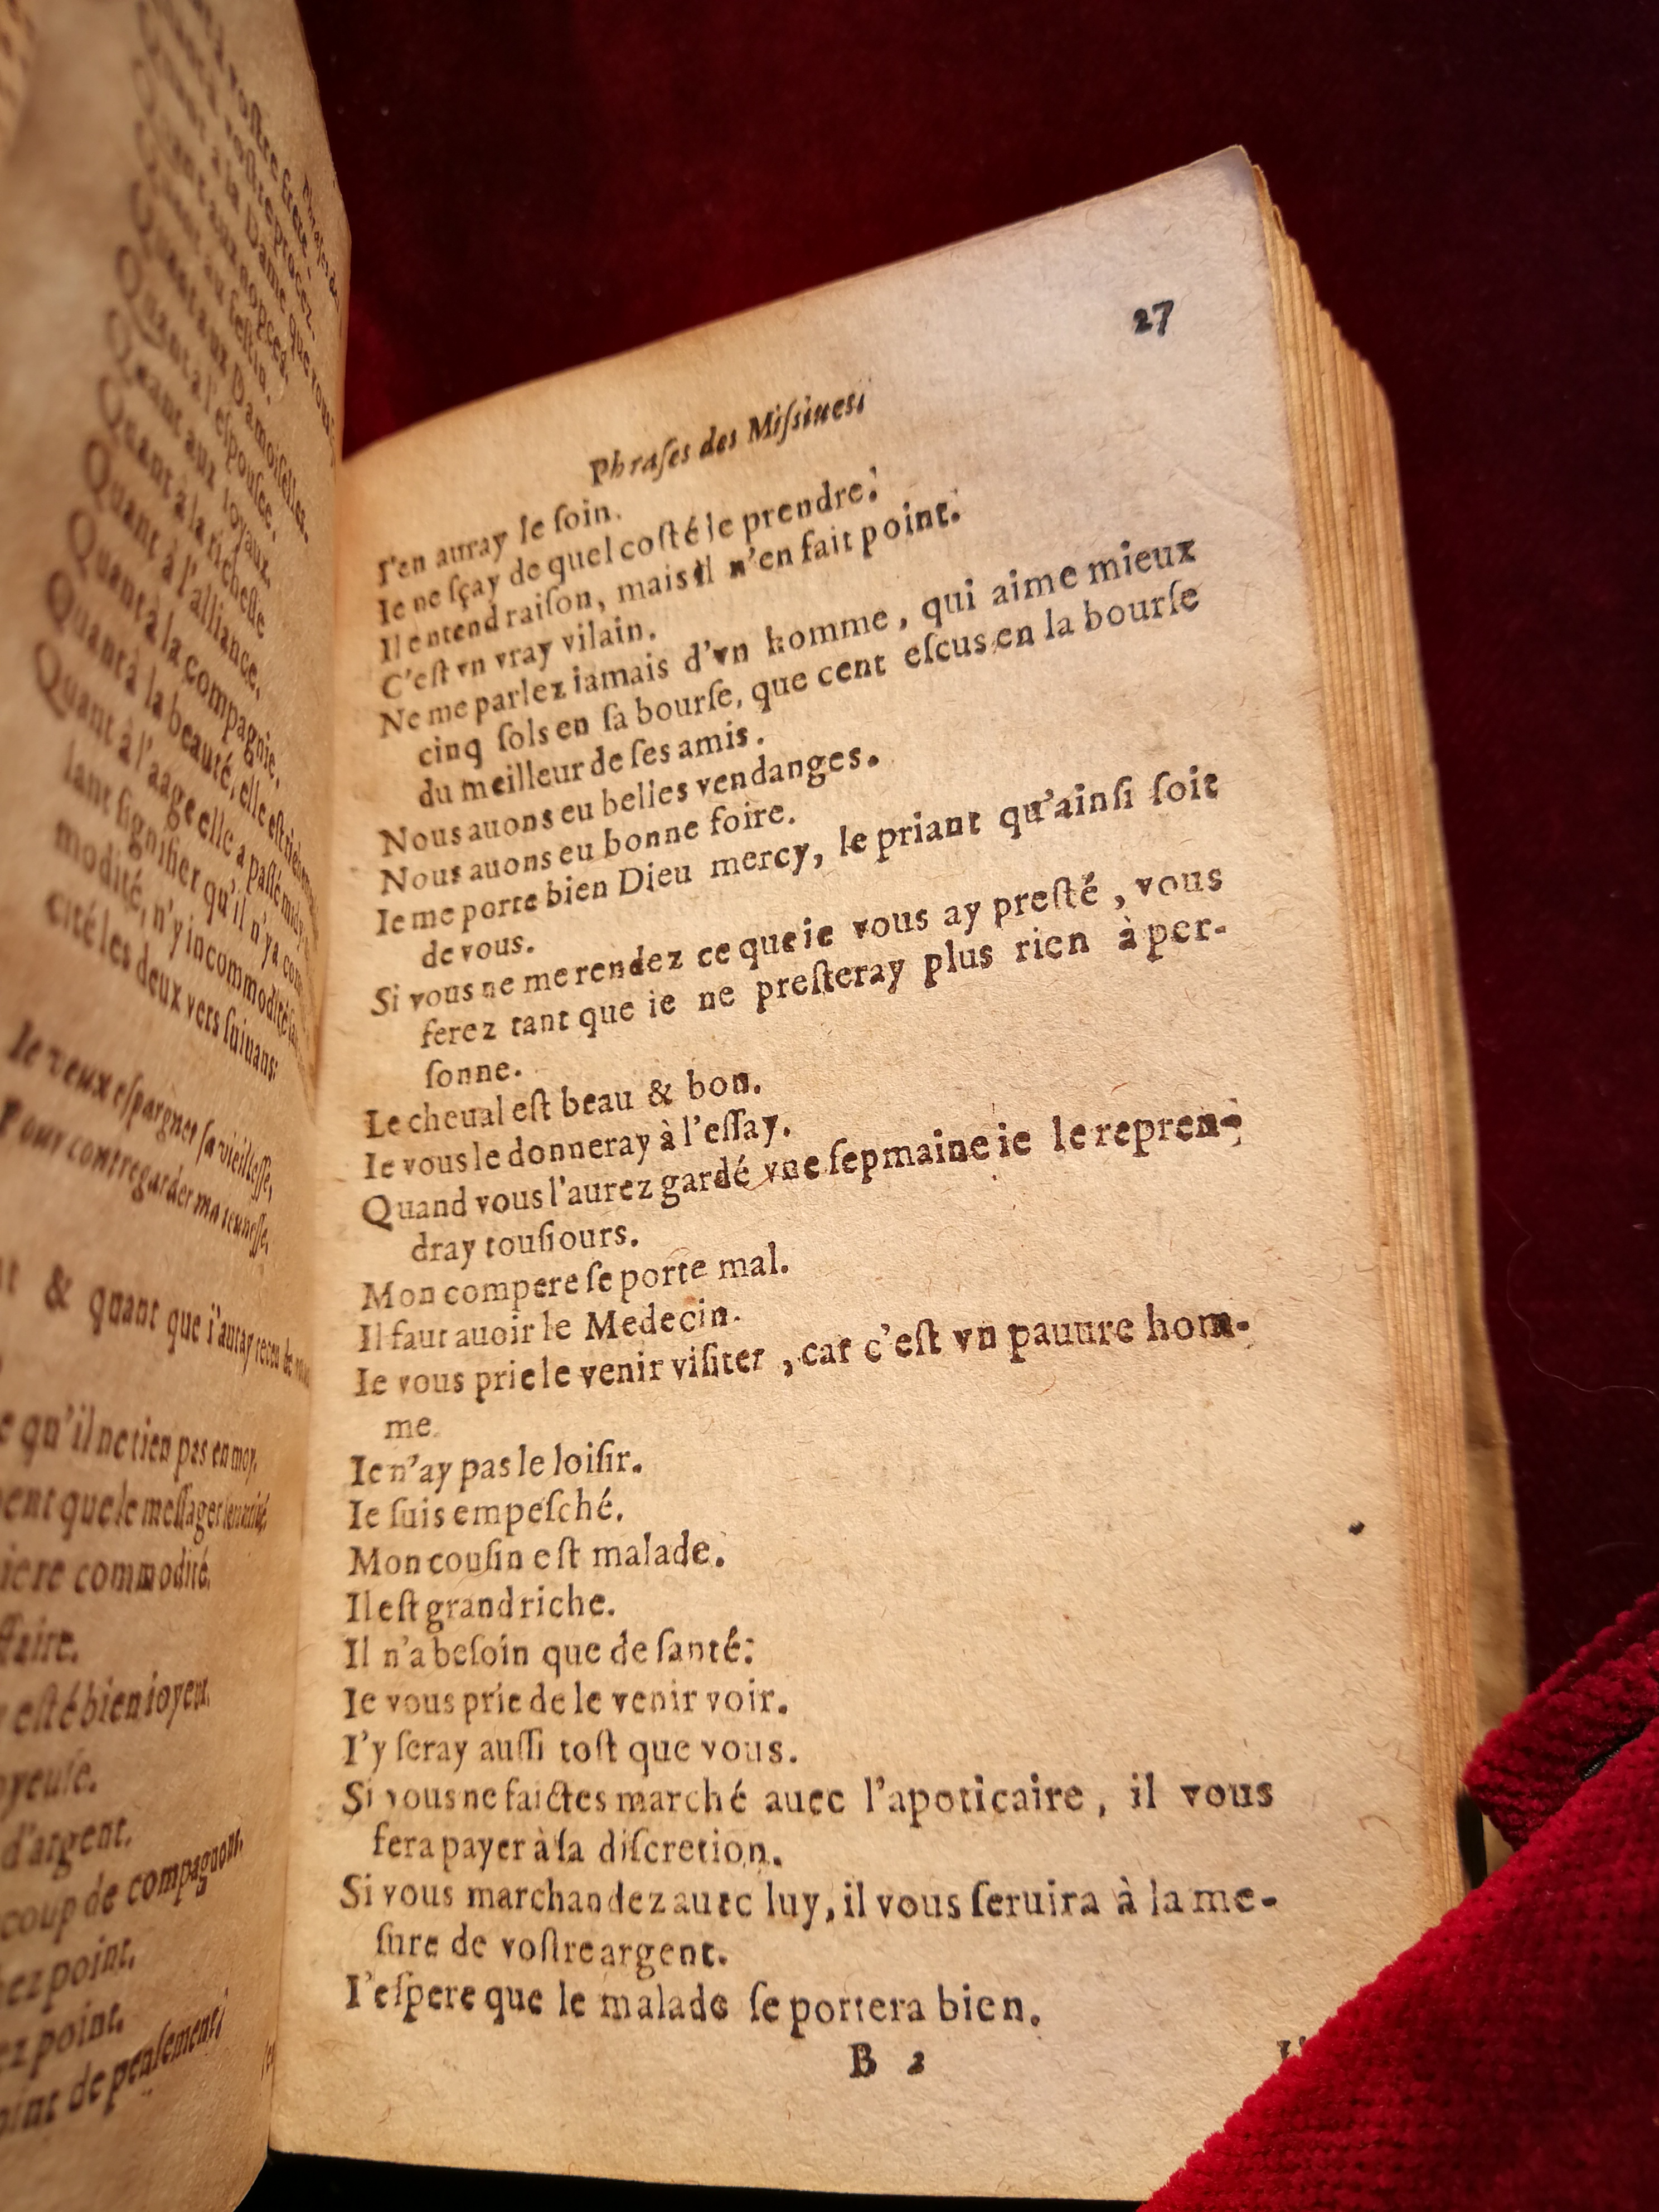 nt & quant que i'auray receu de
e qu'il ne tien pas en moy.
ent que le messager
iere commodité.
ffaire.
esté bien ioyeux
oyeuse.
d'argent.
coup de compagnons.
ez point.
ez point.
oint de pensement
Quant aux Damoiselles.
Quant à l'espousee.
Quant aux ioyaux.
Quant à la richesse
Quant à l'alliance.
Quant à la compagnie.
Quant à la beauté, elle est
Quant à l'aage elle a passé midy
lant signifier qu'il n'y a com
modité, n'y incommodité
cité les deux vers suiuans:
Ie veux espargner sa vieillesse,
Pour contregarder ma ieunesse,
27
Phraſes des Miſſiues
I'en auray le ſoin.
Ie ne ſçay de quel coſté le prendre.
Il entend raiſon, mais il n'en fait point.
C'eſt vn vray vilain.
Ne me parlez iamais d'vn homme, qui aime mieux
cinq ſols en ſa bourſe, que cent eſcus en la bourſe
du meilleur de ſes amis.
Nous auons eu belles vendanges.
Nous auons eu bonne foire.
Ie me porte bien Dieu mercy, le priant qu'ainſi ſoit
de vous.
Si vous ne me rendez ce que ie vous ay preſté, vous
ferez tant que ie ne preſteray plus rien à per-
ſonne.
Le cheual eſt beau & bon.
Ie vous le donneray à l'eſſay.
Quand vous l'aurez gardé vne ſepmaine ie le repren-
dray touſiours.
Mon compere ſe porte mal.
Il faut auoir le Medecin.
Ie vous prie le venir viſiter, car c'eſt vn pauure hom-
me.
Ie n'ay pas le loiſir.
Ie ſuis empeſché.
Mon couſin eſt malade.
Il eſt grand riche.
Il n'a beſoin que de ſanté:
Ie vous prie de le venir voir.
I'y ſeray auſſi toſt que vous.
Si vous ne faictes marché auec l'apoticaire, il vous
fera payer à ſa diſcretion.
Si vous marchandez auec luy, il vous ſeruira à la me-
ſure de voſtre argent.
I'eſpere que le malade ſe portera bien.
B 2